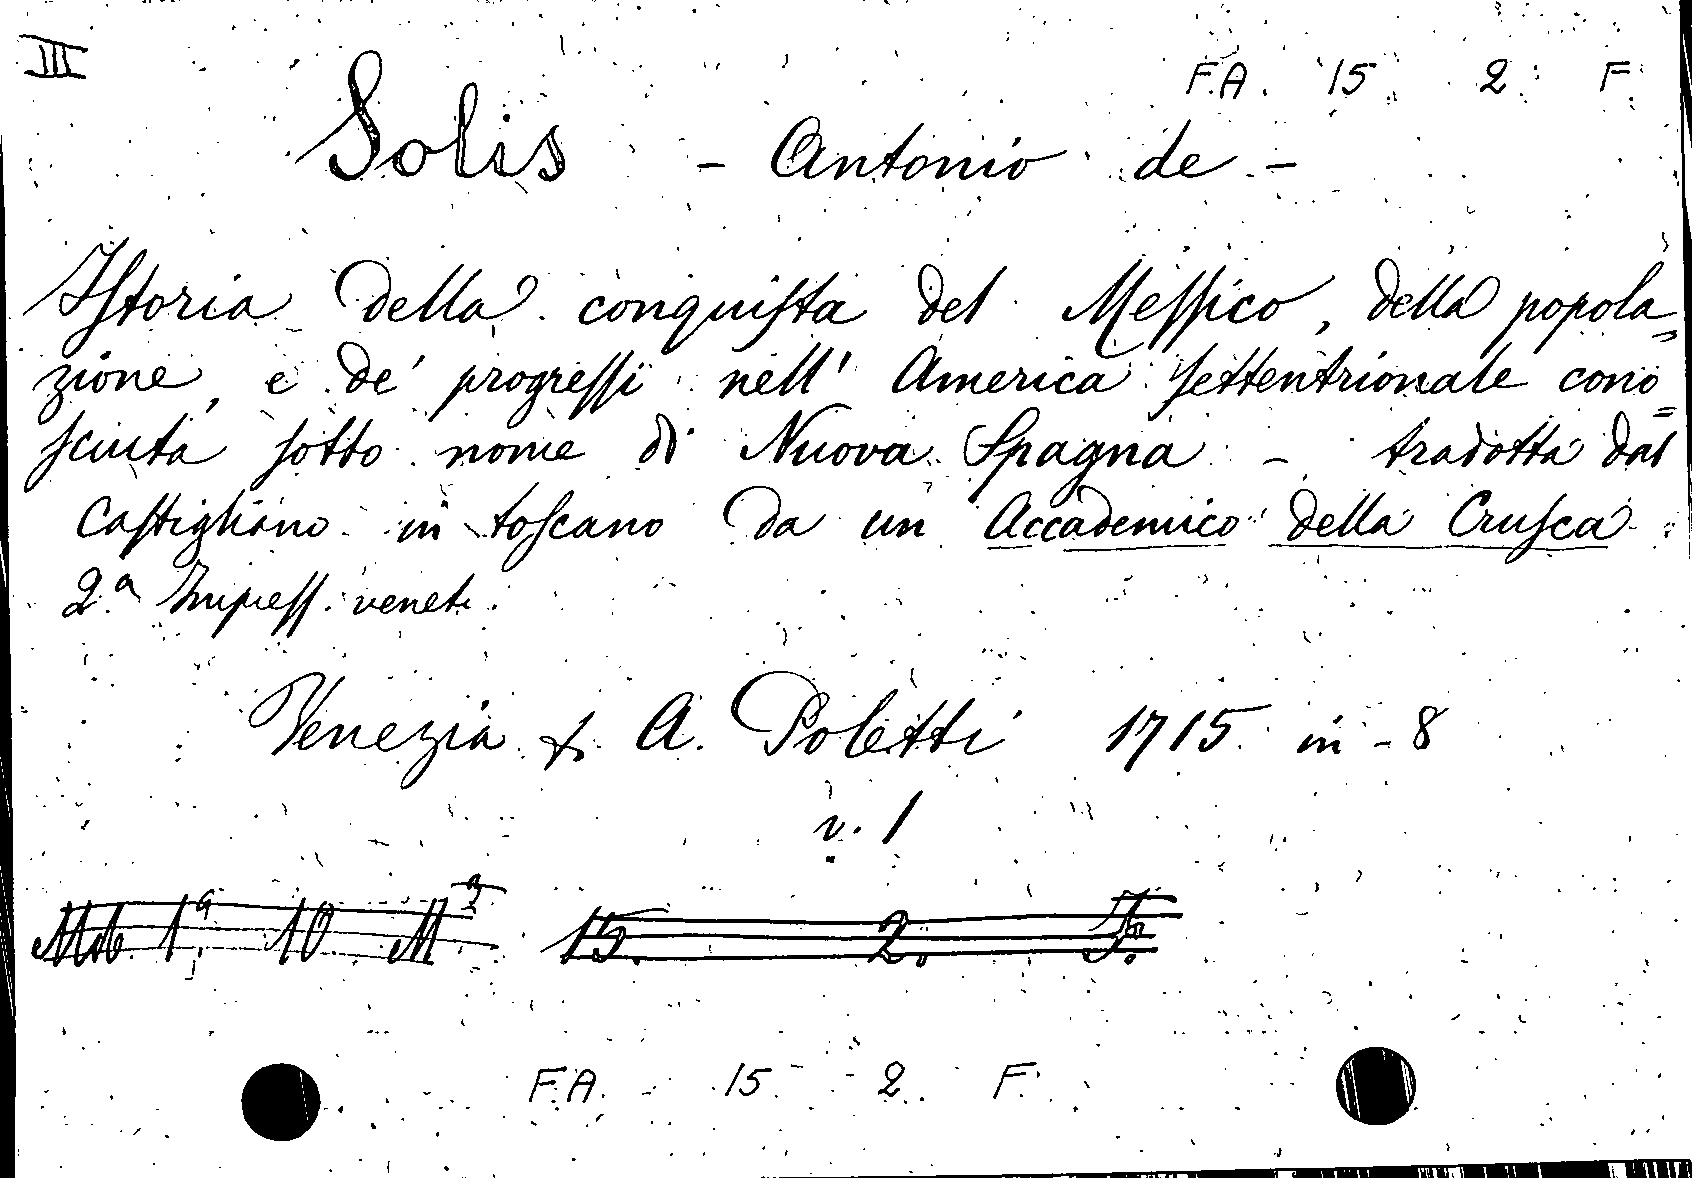 III
F.A. 15 2 F.
Solis - Antonio de -
Istoria della conquista del Messico, della popola=
zione, e de' progressi nell' America settentrionale cono=
sciuta sotto nome di Nuova Spagna - tradotta dal
Castigliano in toscano da un Accademico della Crusca.
2.a Impress. veneta.
Venezia A. Poletti 1715 in-8
v. 1
1a. 10 M 15. 2. F.
F.A. 15 2 F.